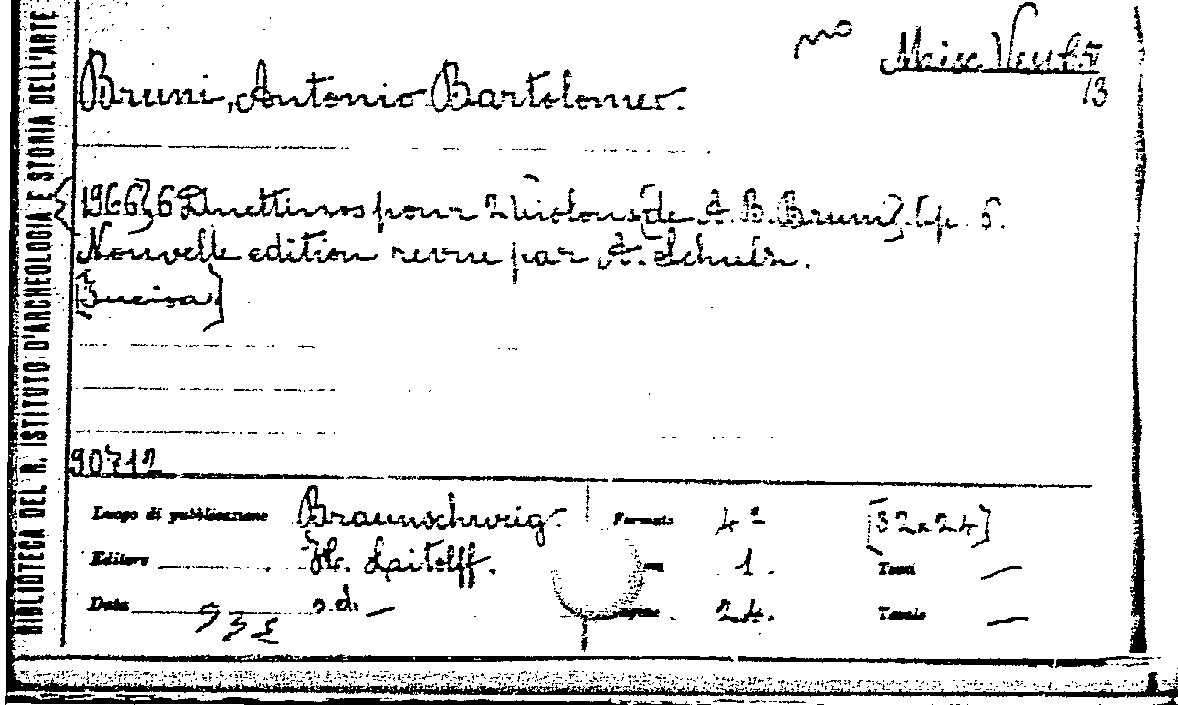 BIBLIOTECA DEL R. ISTITUTO D'ARCHEOLOGIA E STORIA DELL'ARTE
Bruni, Antonio Bartolomeo.
13
1966} 6 Duettinos pour 2 Violons [de A. B. Bruni]. Op. 6.
Nouvelle edition revue par A. Schulz.
90712
Luogo di pubblicazione Braunschweig. Formato 4º [32x24]
Editore H. Laitolff. 1. Tomi —
Data s.d. — 24. Tavole —
535